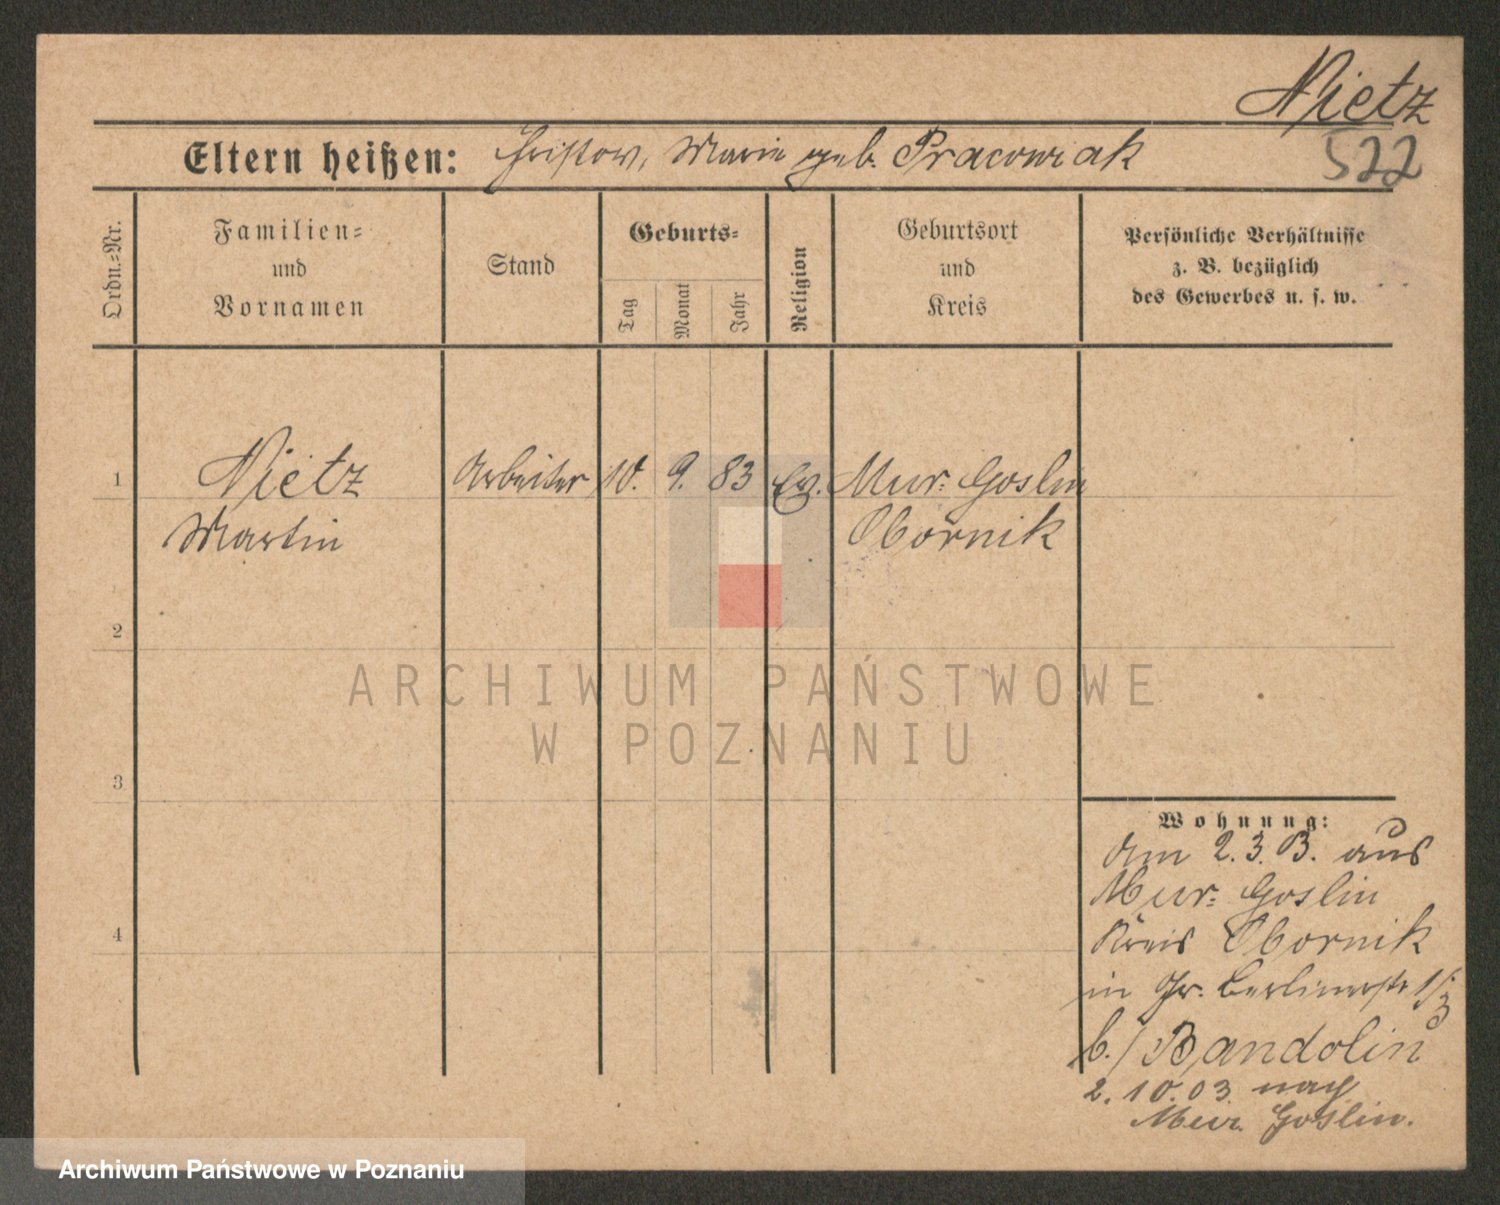 Nietz
522
Eltern heißen: Christow, Marie geb. Pracowiak
Ordn.=Nr.
Familien=
und
Vornamen
Stand
Geburts=
Tag
Monat
Jahr
Religion
Geburtsort
und
Kreis
Persönliche Verhältnisse
z. B. bezüglich
des Gewerbes u. s. w.
1
Nietz Arbeiter 10. 9. 83 Ev. Mur. Goslin
Martin Obornik
2
3
4
ARCHIWUM PAŃSTWOWE
W POZNANIU
Wohnung:
Am 2.3.03. aus
Mur. Goslin
Kreis Obornik
in Gr. Berlinerstr
b./ Bandolin
2.10.03 nach
Mur. Goslin.
Archiwum Państwowe w Poznaniu